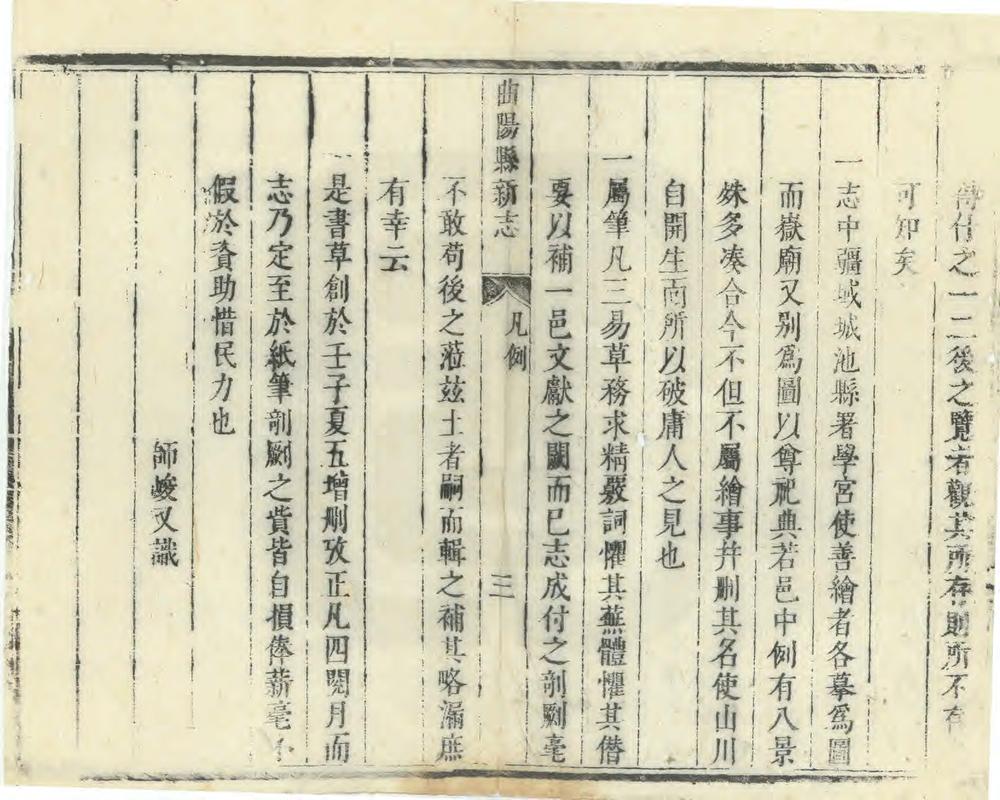 什之一二後之覽者觀其所存則所不有
可知矣
一志中疆域城池縣署學宮使善繪者各摹爲圖
而嶽廟又別爲圖以尊祀典若邑中例有八景
姝多凑合今不但不屬繪事幷刪其名使山川
自開生面所以破庸人之見也
一屬筆凡三易草務求精嚴詞懼其蕪體懼其僭
要以補一邑文獻之闕而已志成付之剞劂毫
曲陽縣新志 凡例 三
不敢苟後之蒞玆土者嗣而輯之補其略漏庶
有幸云
一是書草創於壬子夏五增刪攷正凡四閱月而
志乃定至於紙筆剞劂之貲皆自損俸薪毫不
假於資助惜民力也
師峻又識